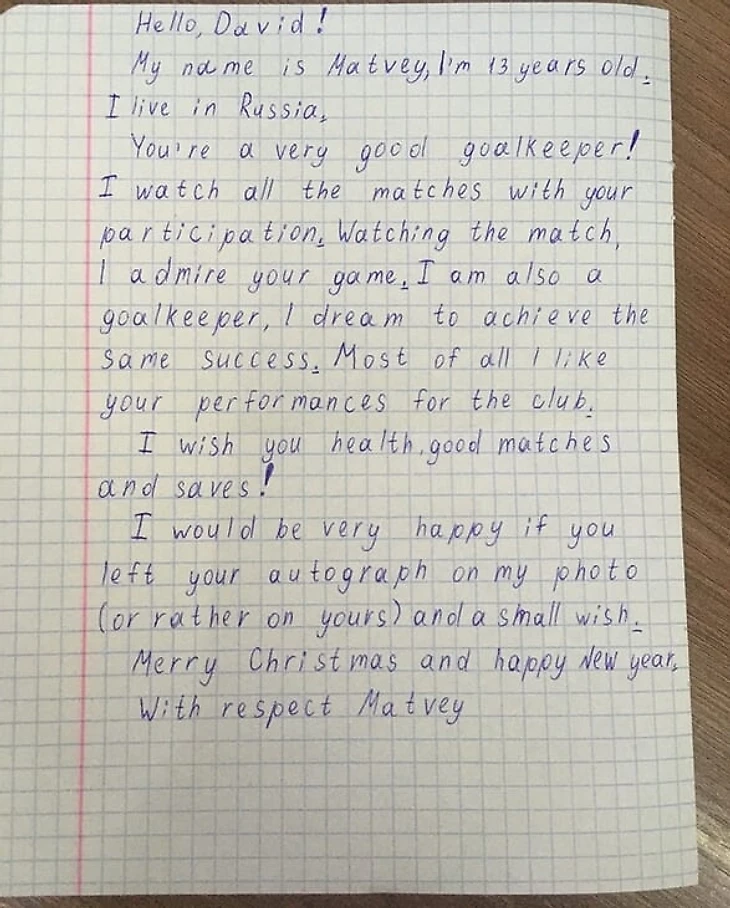 Hello, David!
My name is Matvey, I'm 13 years old.
I live in Russia.
You're a very good goalkeeper!
I watch all the matches with your
participation. Watching the match,
I admire your game. I am also a
goalkeeper, I dream to achieve the
same success. Most of all I like
your performances for the club.
I wish you health, good matches
and saves!
I would be very happy if you
left your autograph on my photo
(or rather on yours) and a small wish.
Merry Christmas and happy New year.
With respect Matvey